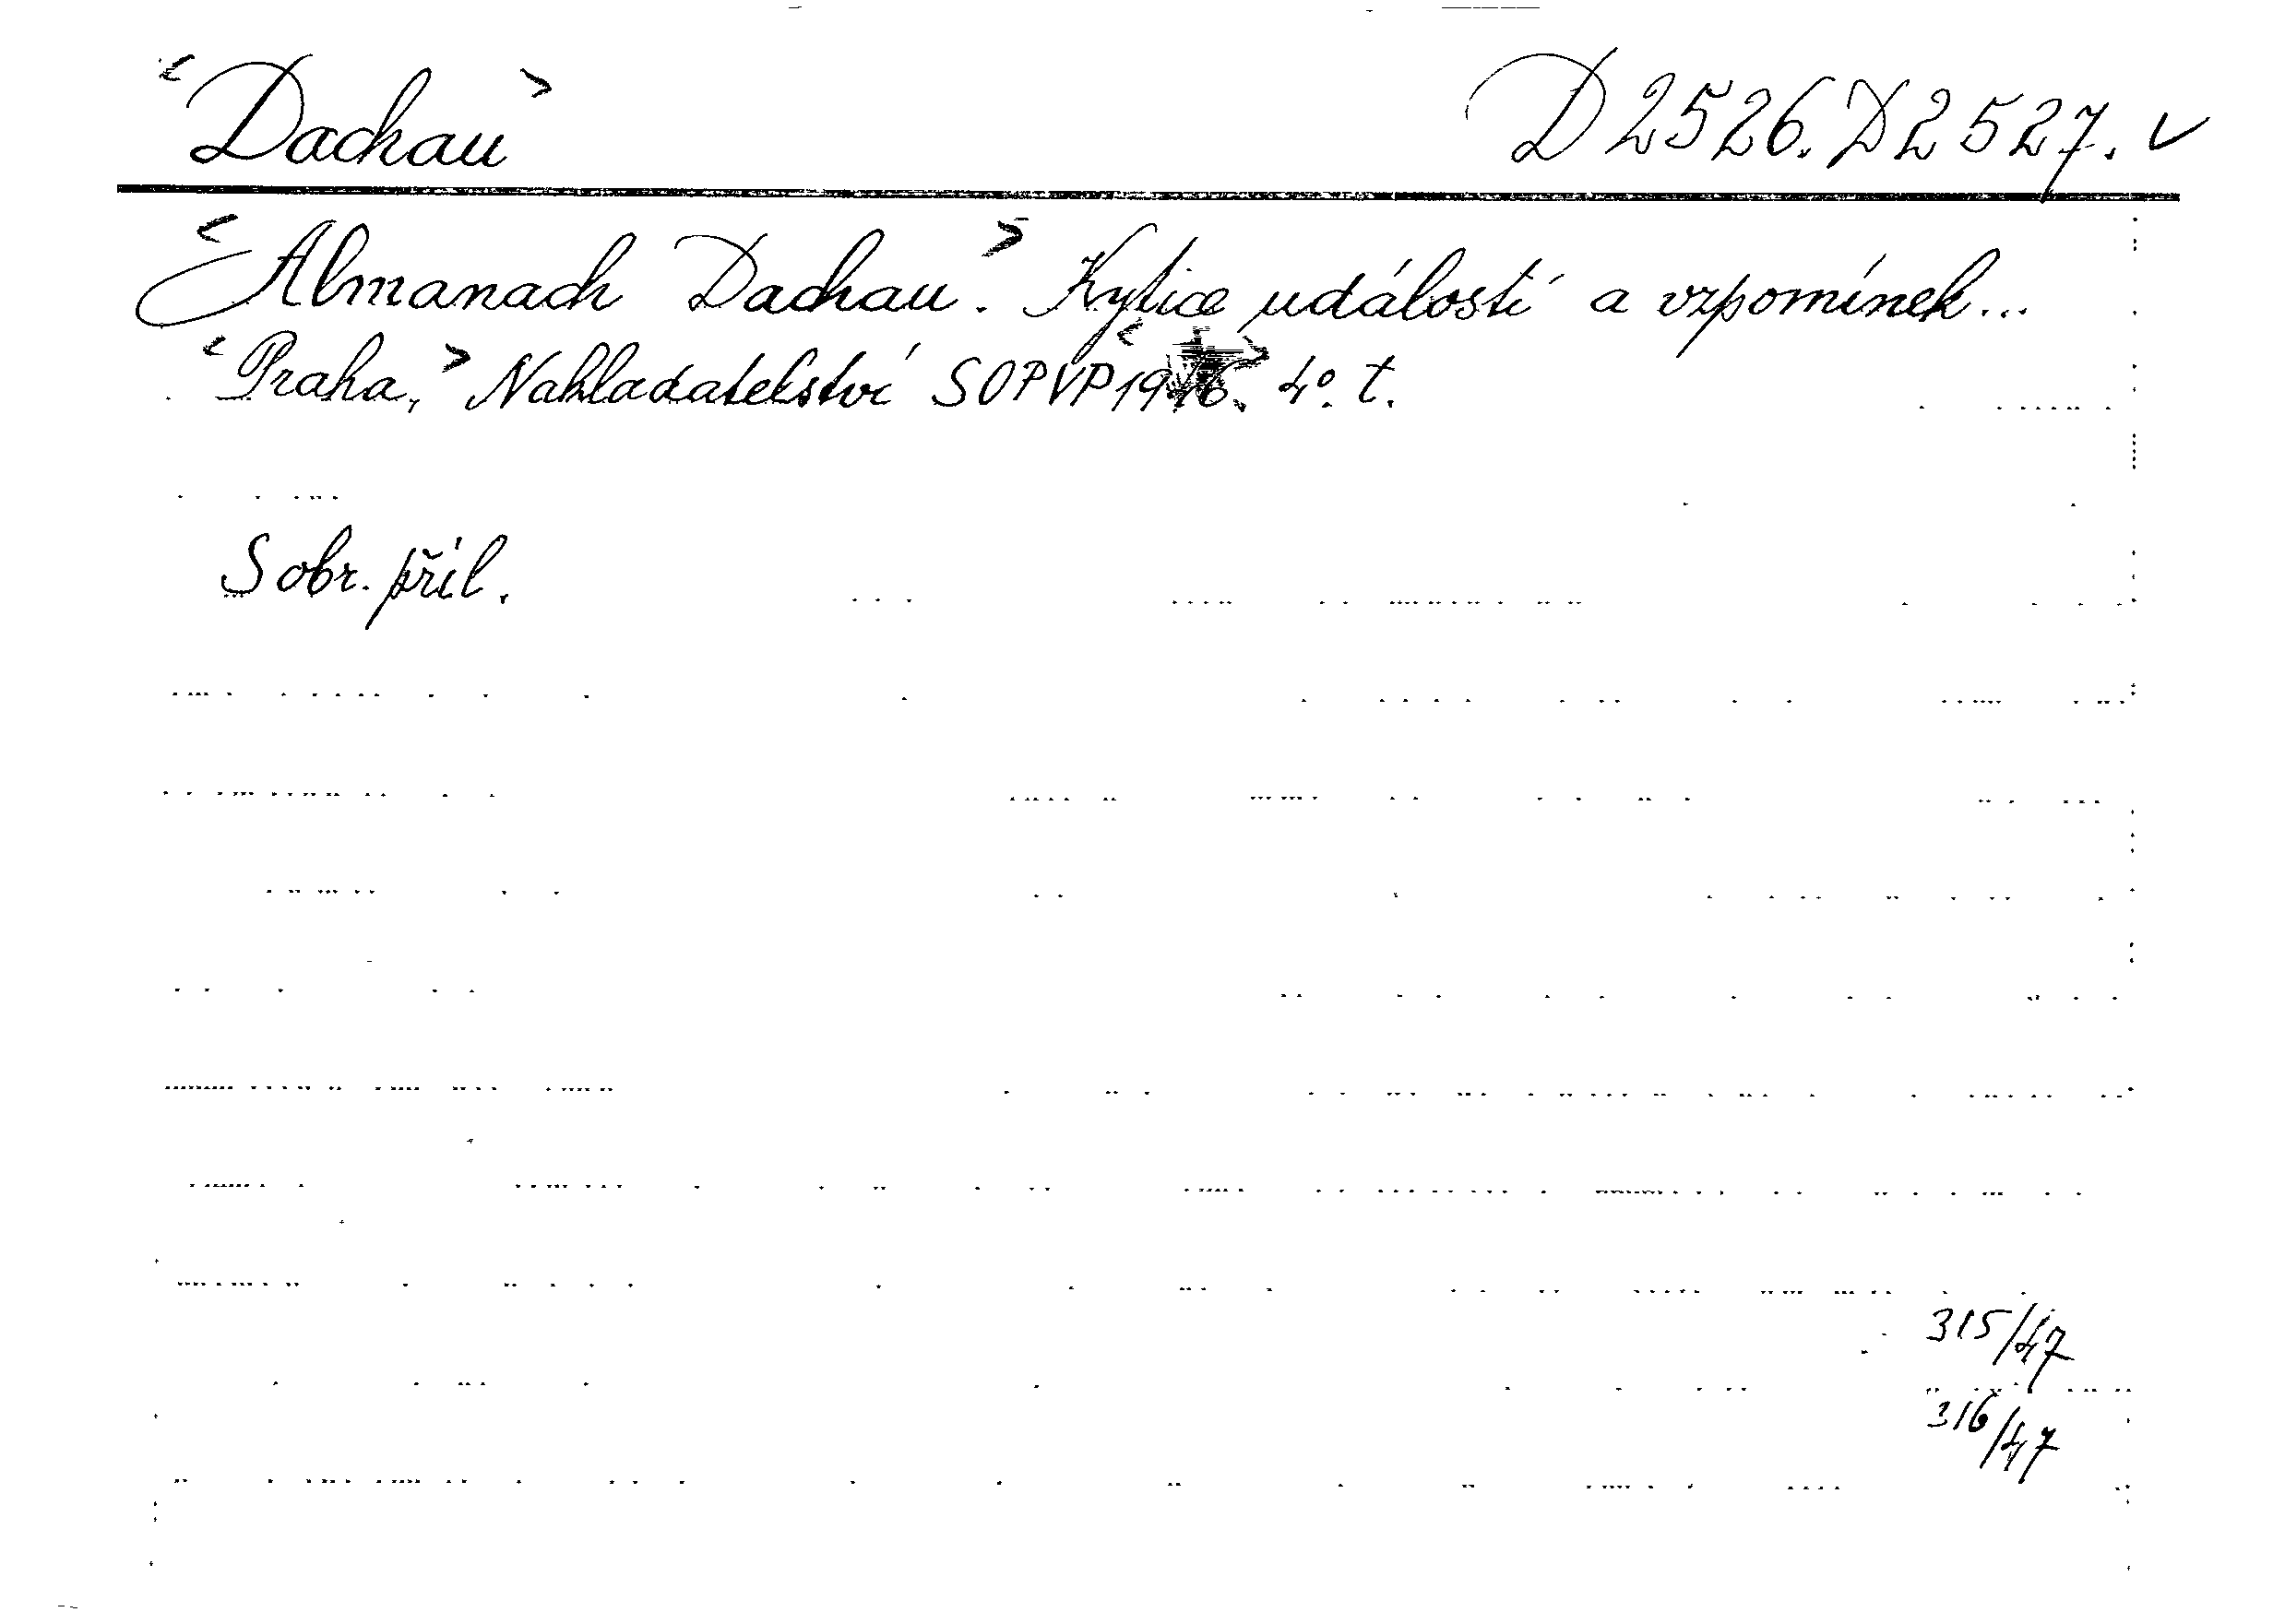 <Dachau> D 2526. D 2527. ✓
<Almanach Dachau.> Kytice událostí a vzpomínek...
<Praha,> Nakladatelství SOPVP <1946.> 4°. t.
S obr. příl.
315/47
316/47